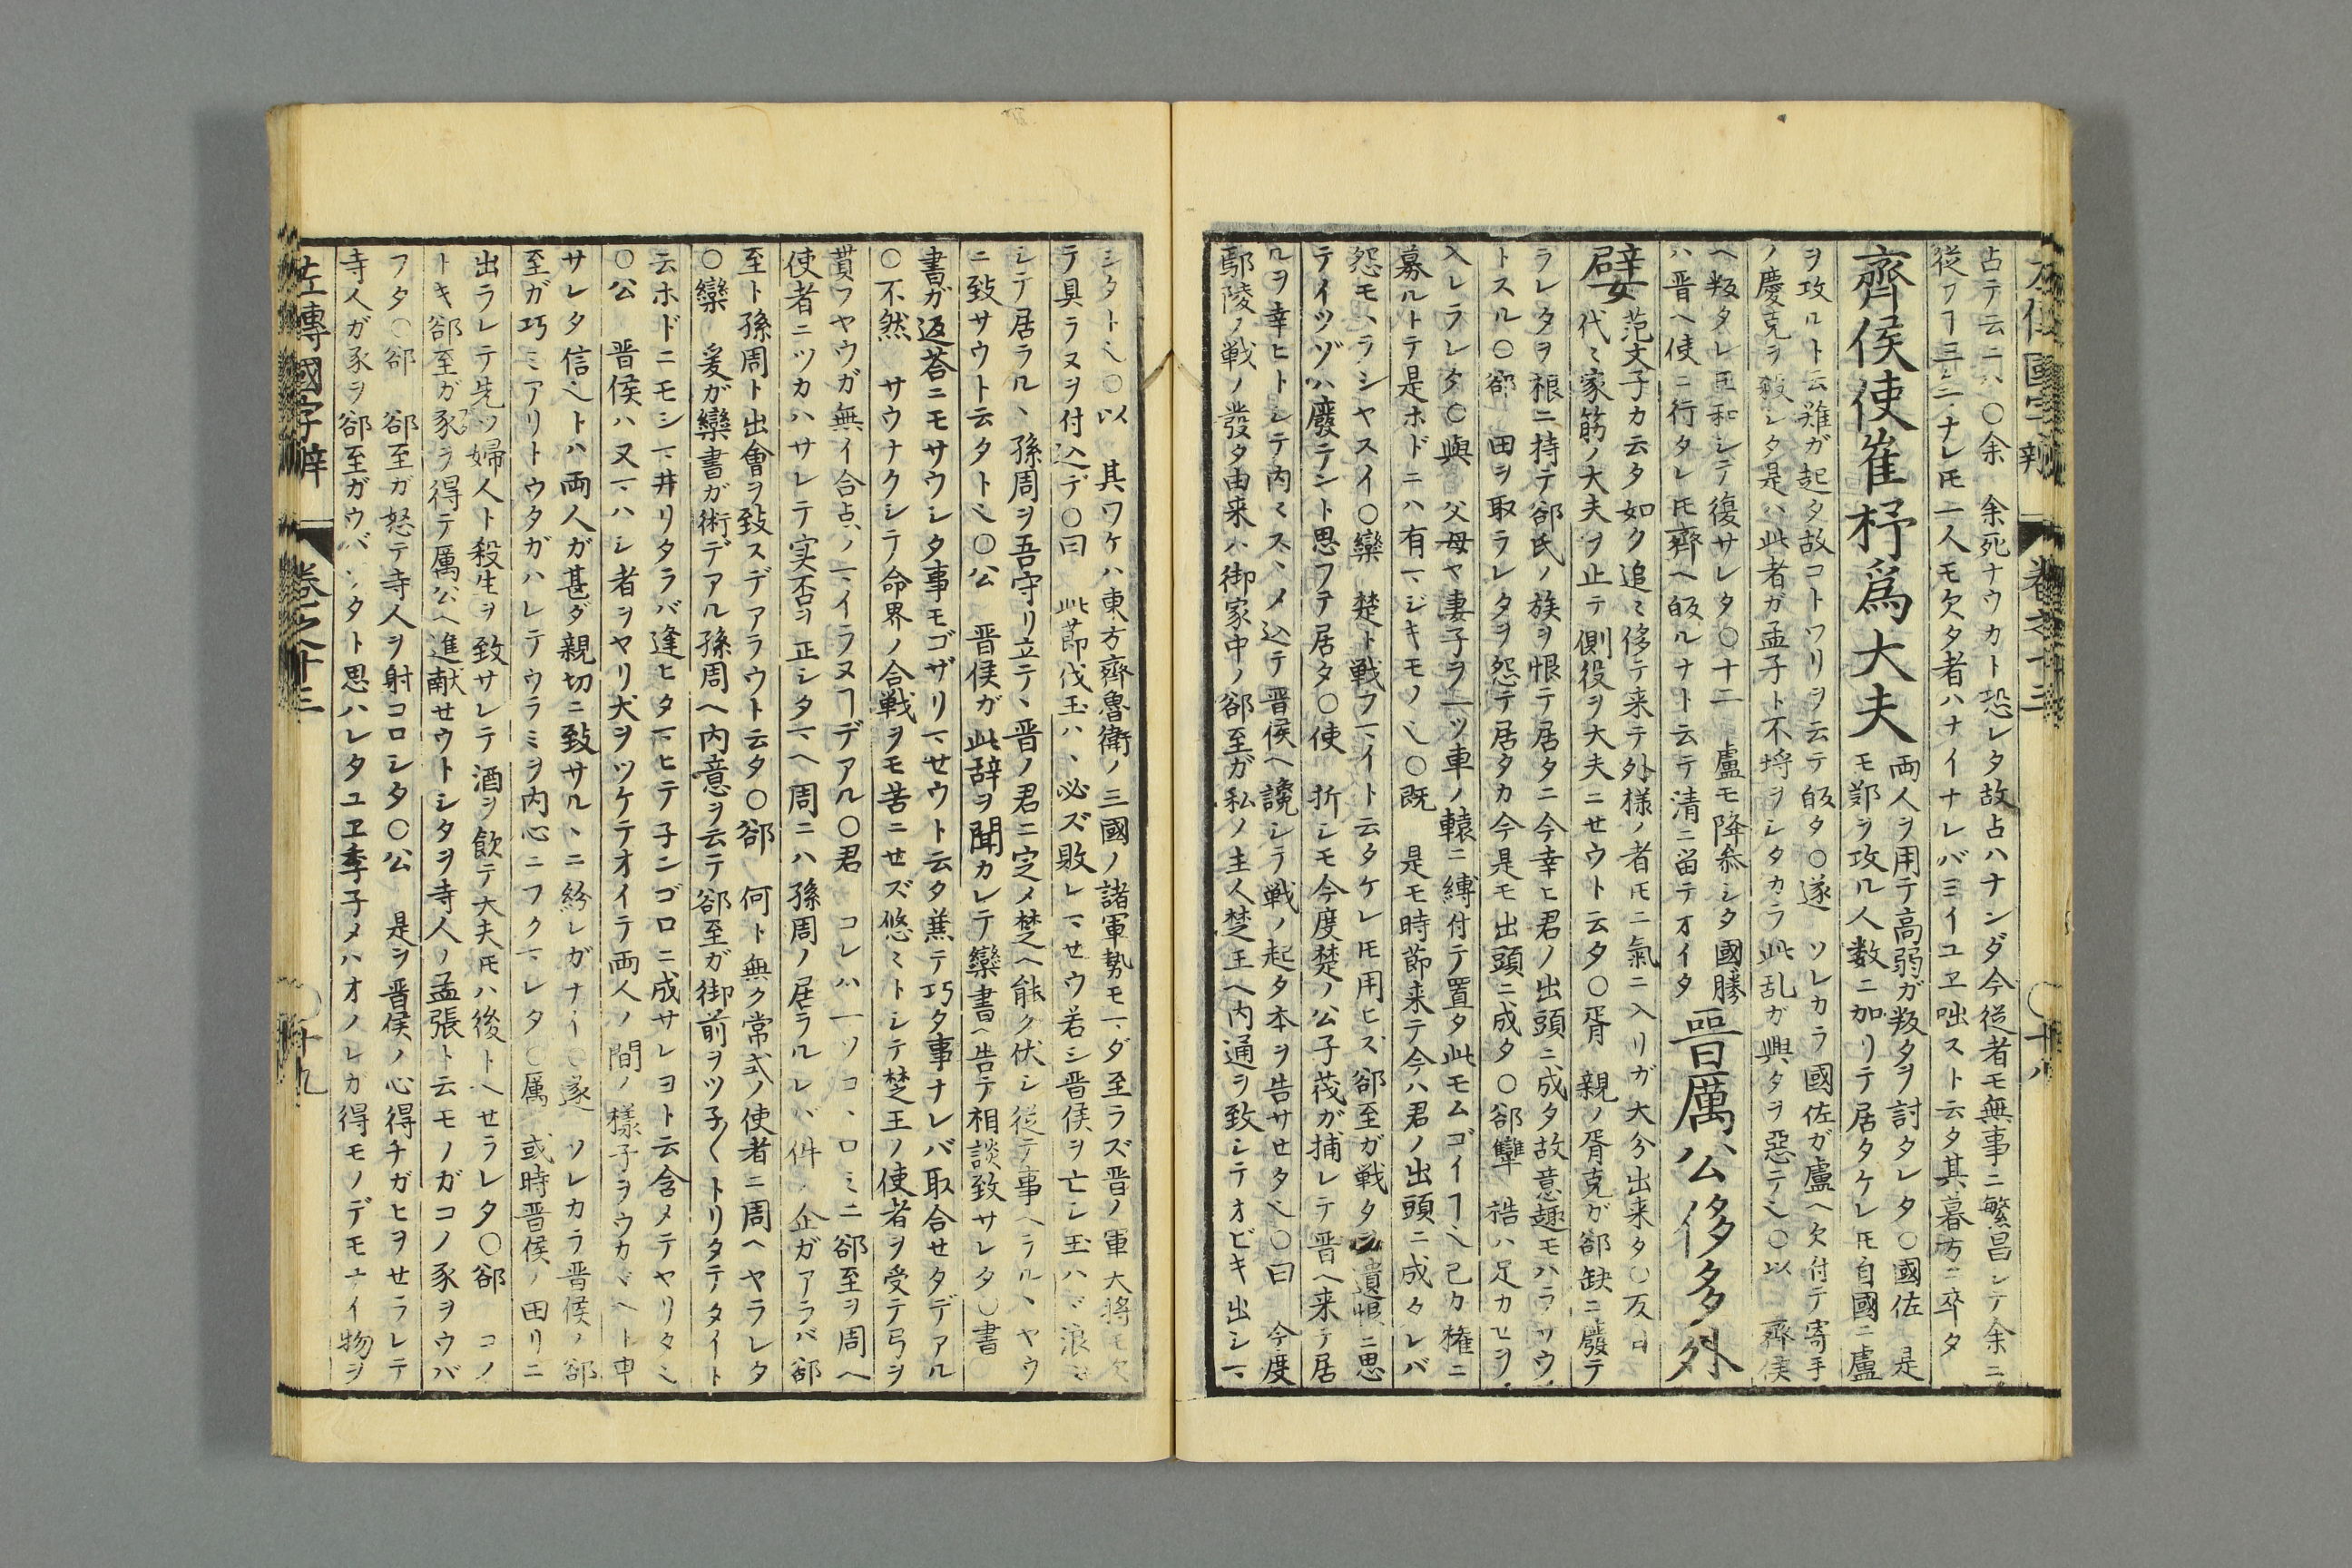 左傳國字辨　卷之十三　〇十八
占テ云ニハ〇余　余死ナウカト恐レタ故占ハナンダ今從者モ無事ニ繁昌シテ余ニ
從フヿ三年ナレ𪜈一人モ欠タ者ハナイナレバヨイユヱ咄スト云タ其暮方ニ卒タ
齊侯使崔杼爲大夫
両人ヲ用テ高弱ガ叛タヲ討タレタ〇國佐　是
モ鄭ヲ攻ル人数ニ加リテ居タケレ𪜈自國ニ盧
ヲ攻ルト云難ガ起タ故コトワリヲ云テ皈タ〇遂　ソレカラ國佐ガ盧ヘ欠付テ寄手
ノ慶克ヲ殺シタ是ハ此者ガ孟子ト不埒ヲシタカラ此乱ガ興タヲ惡テ也〇以　齊侯
ヘ叛タレ𪜈和シテ復サレタ〇十二　盧モ降参シタ國勝
ハ晋ヘ使ニ行タレ𪜈齊ヘ皈ルナト云テ清ニ畄テオイタ
晋厲公侈多外
嬖
范文子カ云タ如ク追〻侈テ来テ外様ノ者𪜈ニ氣ニ入リガ大分出来タ〇反自
代〻家筋ノ大夫ヲ止テ側役ヲ大夫ニせウト云タ〇胥　親ノ胥克ガ郤缺ニ廢テ
ラレタヲ根ニ持テ郤氏ノ族ヲ恨テ居タニ今幸ヒ君ノ出頭ニ成タ故意趣モハラソウ
トスル〇郤　田ヲ取ラレタヲ怨テ居タカ今是モ出頭ニ成タ〇郤犨　梏ハ足カセヲ
入レラレタ〇與　父母ヤ妻子ヲ一ツ車ノ轅ニ縛付テ置タ此モムゴイヿ也己カ権ニ
募ルトテ是ホドニハ有マジキモノ也〇既　是モ時節来テ今ハ君ノ出頭ニ成タレバ
怨モハラシヤスイ〇欒　楚ト戦フマイト云タケレ𪜈用ヒズ郤至ガ戦タヲ遺恨ニ思
テイツゾハ廢テント思フテ居タ〇使　折シモ今度楚ノ公子茷ガ捕レテ晋ヘ来テ居
ルヲ幸ヒトシテ内〻スヽメ込テ晋侯ヘ讒シラ戦ノ起タ本ヲ告サせタ也〇曰　今度
鄢陵ノ戦ノ發タ由来ハ御家中ノ郤至ガ私ノ主人楚王ヘ内通ヲ致シテオビキ出シマ
シタト也〇以　其ワケハ東方齊魯衛ノ三國ノ諸軍勢モマダ至ラズ晋ノ軍大將モ欠
テ具ラヌヲ付込デ〇曰　此節伐玉ハヽ必ズ敗レマせウ若シ晋侯ヲ亡シ玉ハヾ浪〻
シテ居ラルヽ孫周ヲ吾守リ立テヽ晋ノ君ニ定メ楚ヘ能ク伏シ從テ事ヘラルヽヤウ
ニ致サウト云タト也〇公　晋侯ガ此辞ヲ聞カレテ欒書ヘ告テ相談致サレタ〇書
書ガ返荅ニモサウシタ事モゴザリマせウト云タ兼テ巧タ事ナレバ取合せタデアル
〇不然　サウナクシテ命界ノ合戦ヲモ苦ニせズ悠〻トシテ楚王ノ使者ヲ受テ弓ヲ
貰フヤウガ無イ合点ノマイラヌヿデアル〇君　コレハ一ツコヽロミニ郤至ヲ周ヘ
使者ニツカハサレテ実否ヲ正シタマヘ周ニハ孫周ノ居ラルレバ件ノ企ガアラバ郤
至ト孫周ト出會ヲ致スデアラウト云タ〇郤　何ト無ク常式ノ使者ニ周ヘヤラレタ
〇欒　爰ガ欒書ガ術デアル孫周ヘ内意ヲ云テ郤至ガ御前ヲツ子〱トリタテタイト
云ホドニモシマ井リタラバ逢ヒタマヒテ子ンゴロニ成サレヨト云含メテヤリタ也
〇公　晋侯ハ又マハシ者ヲヤリ犬ヲツケテオイテ両人ノ間ノ様子ヲウカヾヘト申
サレタ信也トハ両人ガ甚ダ親切ニ致サルヽニ紛レガナイ〇遂　ソレカラ晋侯ノ郤
至ガ巧ミアリトウタガハレテウラミヲ内心ニフクマレタ〇厲　或時晋侯ノ田リニ
出ラレテ先ツ婦人ト殺生ヲ致サレテ酒ヲ飲テ大夫𪜈ハ後トヘせラレタ〇郤　コノ
トキ郤至ガ豕ヲ得テ厲公ヘ進献せウトシタヲ寺人ノ孟張ト云モノガコノ豕ヲウバ
フタ〇郤　郤至ガ怒テ寺人ヲ射コロシタ〇公　是ヲ晋侯ノ心得チガヒヲせラレテ
寺人ガ豕ヲ郤至ガウバシタト思ハレタユヱ季子メハオノレカ得モノデモナイ物ヲ
左傳國字辨　卷之十三　〇十九